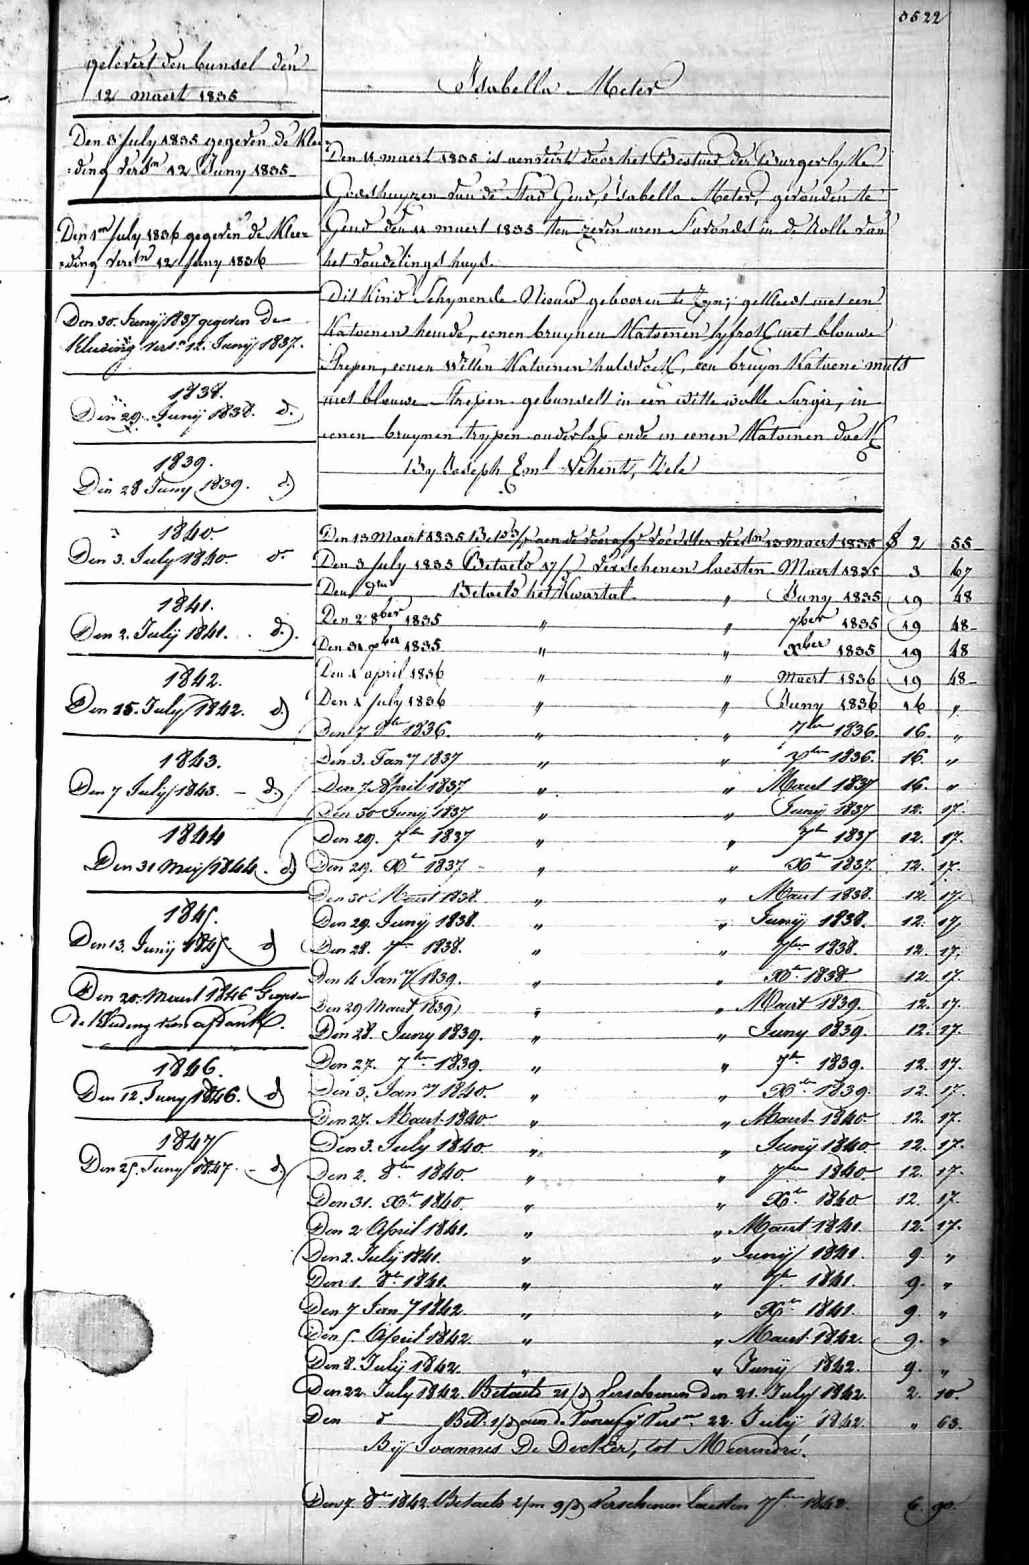 3522
gelevert den bunsel den
12 maert 1835
Den 3 July 1835 gegeven de Klee
ding vers.en 12 Juny 1835
Den 1en July 1836 gegeven de Klee
ding vers.en 12 Juny 1836
Den 30. Junij 1837 gegeven de
Kleeding vers.n 12. Junij 1837.
1838.
Den 29. Junij 1838. d.
1839.
Den 28 Juny 1839. d
1840.
Den 3. July 1840. d.
1841.
Den 2. Julij 1841. d.
1842.
Den 15. July 1842. d
1843.
Den 7 July 1843. - d
1844
Den 31 Meij 1844. d
1845.
Den 13. Junij 1845. d
Den 20. Maert 1846
de Kleding van afdank.
1846.
Den 12. Juny 1846. d
1847
Den 25. Juny 1847. - d.
Isabella Meter
Den 11 maert 1835 is aenveert door het Bestuer der Burgerlyke
Godshuyzen van de Stad Gend, Isabella Meter, gevonden te
Gend den 11 maert 1835 ten zeven uren S'avonds in de Rolle van
het vondelings huys.
Dit Kind Schynende Nieuw gebooren te Zyn; gekleed met een
Katoenen hemde, eenen bruynen Katoenen lyfrok met blouwe
Strepen, eenen Witten Katoenen halsdoek, een bruyn Katoene muts
met blouwe Strepen gebunselt in een witte wolle Sargie, in
eenen bruynen trypen onderlap ende in eenen Katoenen doek
By Joseph Eml Vehent, Zele
Den 13 Maert 1835 aen de voorafge voedster vers.en 13 maert 1835 f 2 55
Den 3 July 1835 Betaeld 17/ Verschenen laesten Maert 1835 3 67
Den dn Betaeld het Kwartal " Juny 1835 19 48
Den 2 8ber 1835 " " 7ber 1835 19 48
Den 31 xber 1835 " " xber 1835 19 48
Den 1 april 1836 " " maert 1836 19 48
Den 1 July 1836 " " Juny 1836 16 "
Den 7 8ber 1836. " " 7ber 1836. 16. "
Den 3. Jany 1837 " " xber 1836. 16. "
Den 7. April 1837 " " Maert 1837 16. "
Den 30 Junij 1837 " " Junij 1837 12. 17.
Den 29. 7ber 1837 " " 7ber 1837 12. 17.
Den 29. Xber 1837 " " Xber 1837. 12. 17.
Den 30 Maert 1838. " " Maert 1838. 12. 17.
Den 29. Junij 1838. " " Junij 1838. 12. 17
Den 28. 7ber 1838. " " 7ber 1838. 12. 17.
Den 4 Jany 1839. " " Xber 1838 12. 17.
Den 29 Maert 1839 " " Maert 1839. 12. 17.
Den 28. Juny 1839. " " Juny 1839. 12. 17.
Den 27. 7ber 1839. " " 7ber 1839. 12. 17.
Den 3. Jany 1840. " " Xber 1839. 12. 17.
Den 27. Maert 1840. " " Maert 1840 12. 17.
Den 3. July 1840 " " Junij 1840 12. 17.
Den 2. 8ber 1840. " " 7ber 1840. 12. 17.
Den 31. Xber 1840. " " Xber 1840 12. 17.
Den 2 April 1841. " " Maert 1841. 12. 17.
Den 2. Julij 1841. " " Junij 1841 9. "
Den 1. 8ber 1841. " " 7ber 1841. 9. "
Den 7 Jany 1842. " " Xber 1841. 9. "
Den 5. April 1842. " " Maert 1842. 9. "
Den 8. Julij 1842. " " Junij 1842. 9. "
Den 22. July 1842. Betaeld 21/d Verschenen den 21. July 1842. 2. 10.
Den d Bet. 1/d aen de Voorafge Vers.en 22. Julij 1842. " 63.
Bij Joannes De Decker, tot Meerendré.
Den 7. 8ber 1842. Betaeld 2/m 9/d Verschenen laesten 7ber 1842. 6 90.